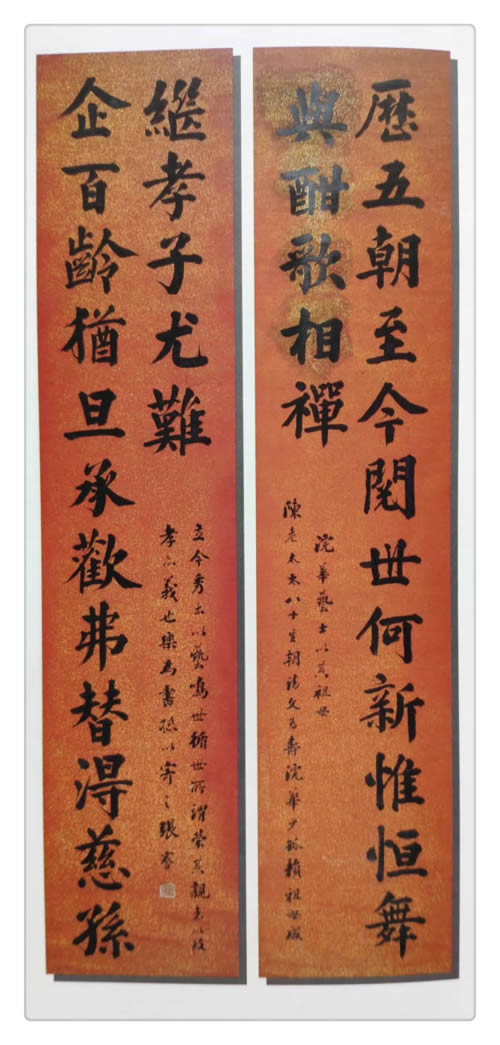 歷五朝至今閱世何新惟恒舞
與酣歌相禪
浣華藝士以其祖母
陳老太太八十生朝請文為壽浣華少孤賴祖母成
企百齡猶旦承歡弗替淂慈孫
繼孝子尤難
立今秀出以藝鳴世循世所謂榮其親者以
孝亦義也樂為書聯以寄之張謇